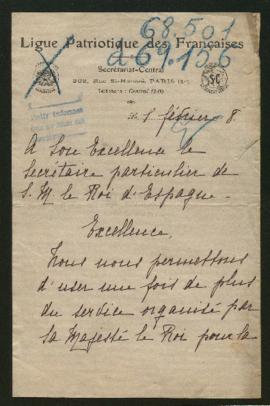 68.501
Ligue Patriotique des Françaises
a 69.156
Secrétariat-Central
368, Rue St-Honoré, PARIS
Téléphone : Central
1 février 8.
A Son Excellence le
Secrétaire particulier de
S. M. le Roi d'Espagne.
Excellence,
Nous nous permettons
d'user une fois de plus
du service organisé par
Sa Majesté le Roi pour la